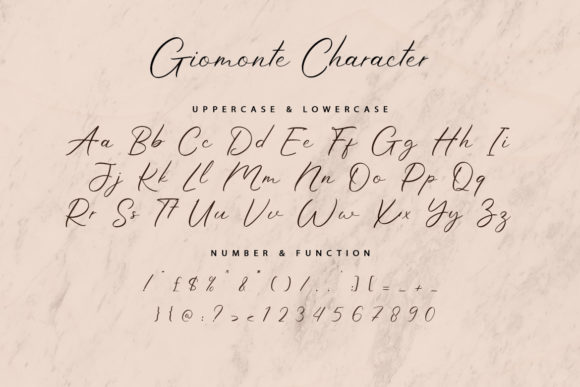 Giomonte Character
UPPERCASE & LOWERCASE
Aa Bb Cc Dd Ee Ff Gg Hh Ii
Jj Kk Ll Mm Nn Oo Pp Qq
Rr Ss Tt Uu Vv Ww Xx Yy Zz
NUMBER & FUNCTION
! " £ $ % ^ & * ( ) / . , ' : ] [ = _ + -
} { @ : ? > < 1 2 3 4 5 6 7 8 9 0